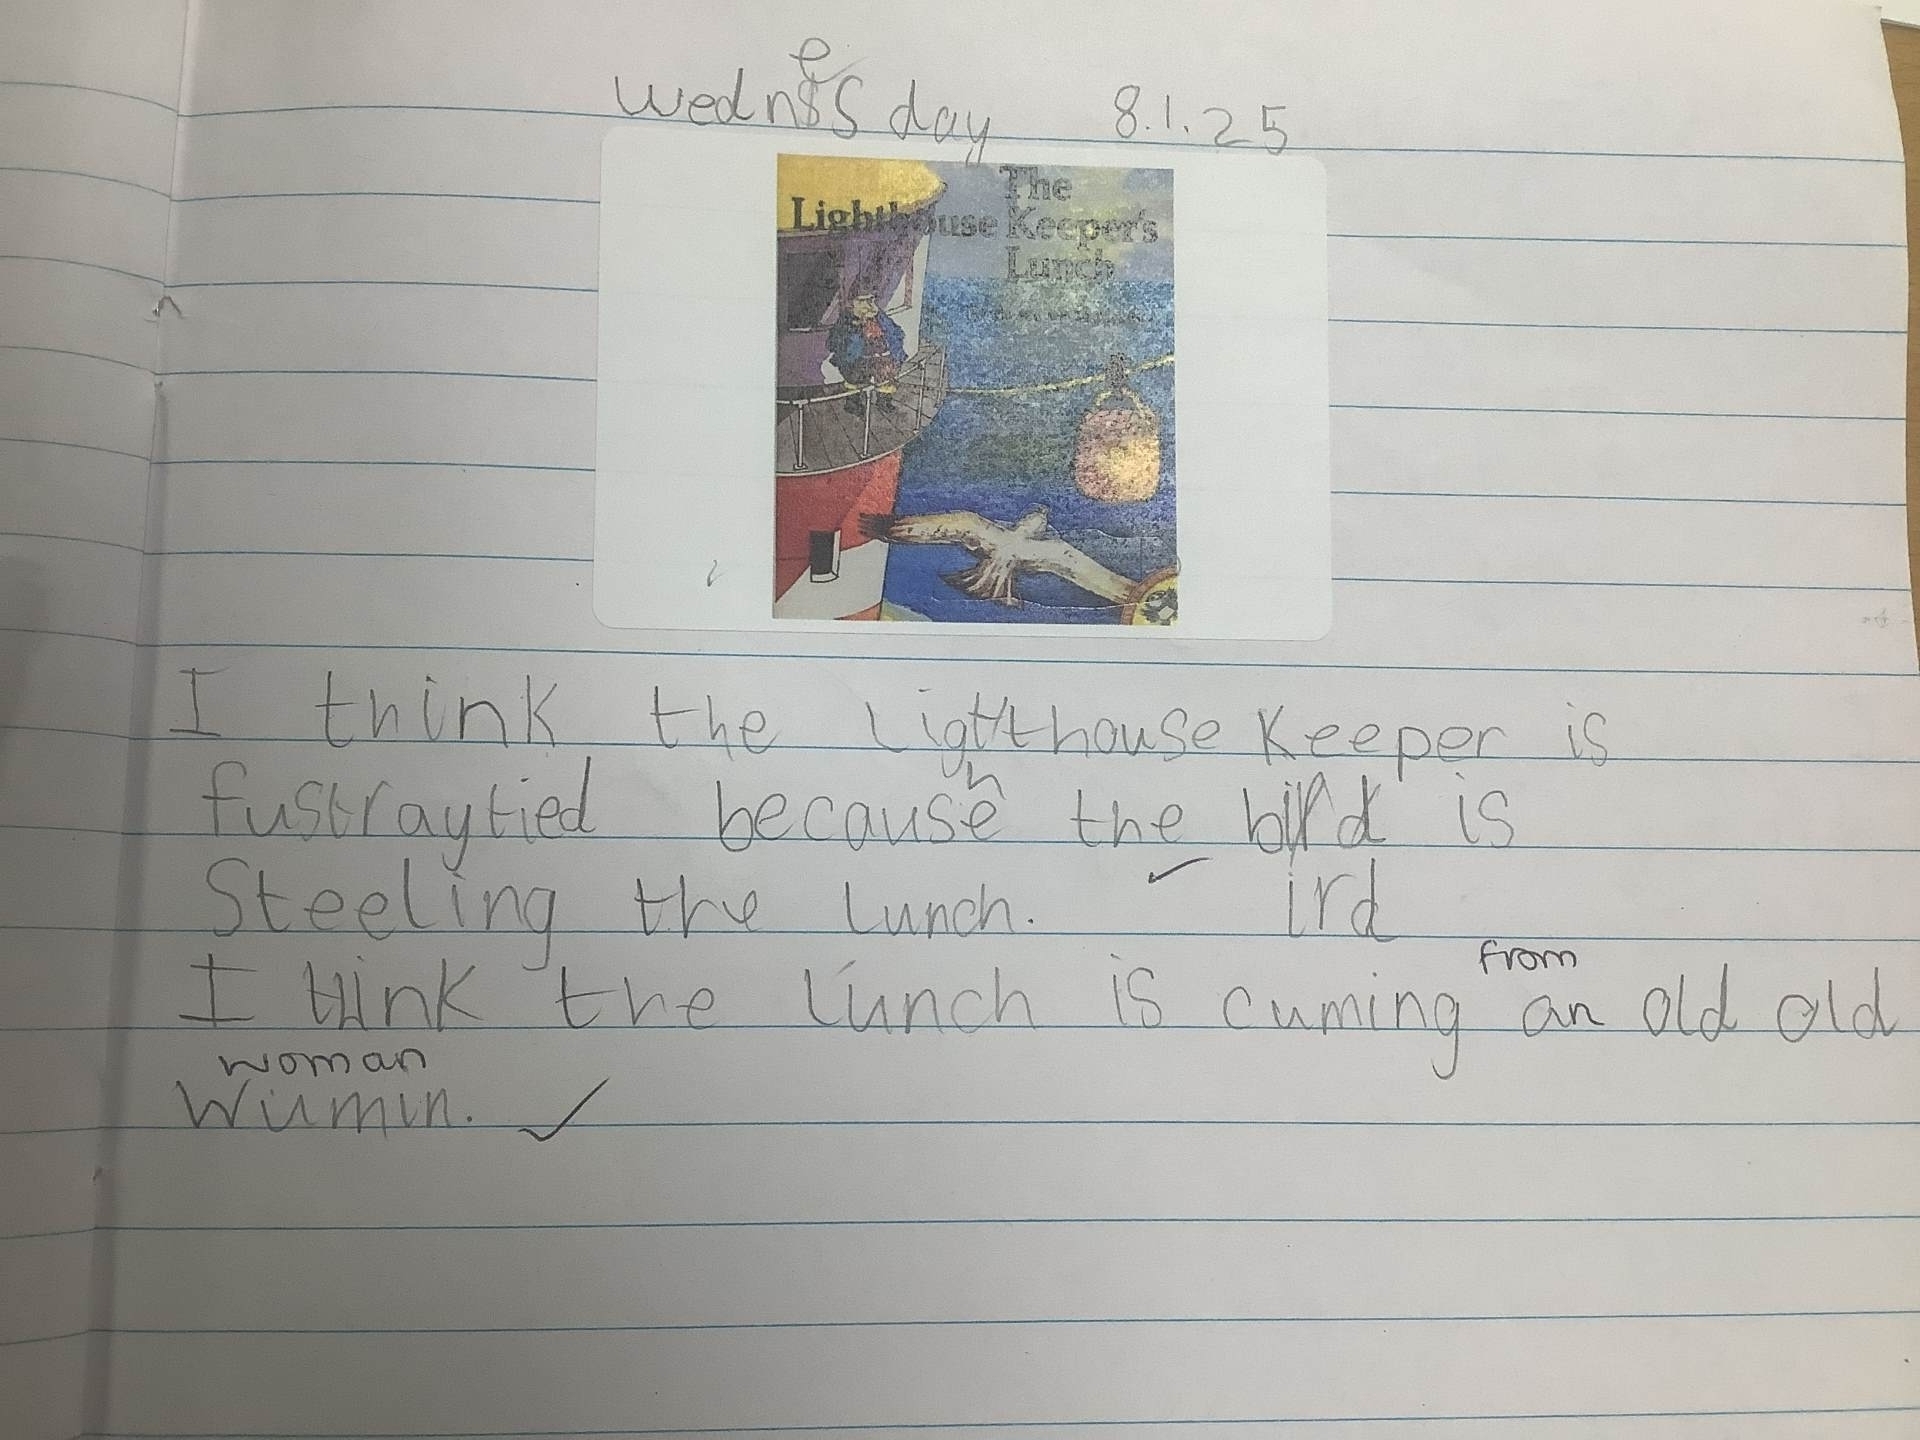 e
Wednesday 8.1.25
The
Lighthouse Keeper's
Lunch
I think the Lighthouse Keeper is
h
fustraytied because the bird is
Steeling the lunch. ✓ ird
from
I think the lunch is cuming an old old
woman
Wumin. ✓